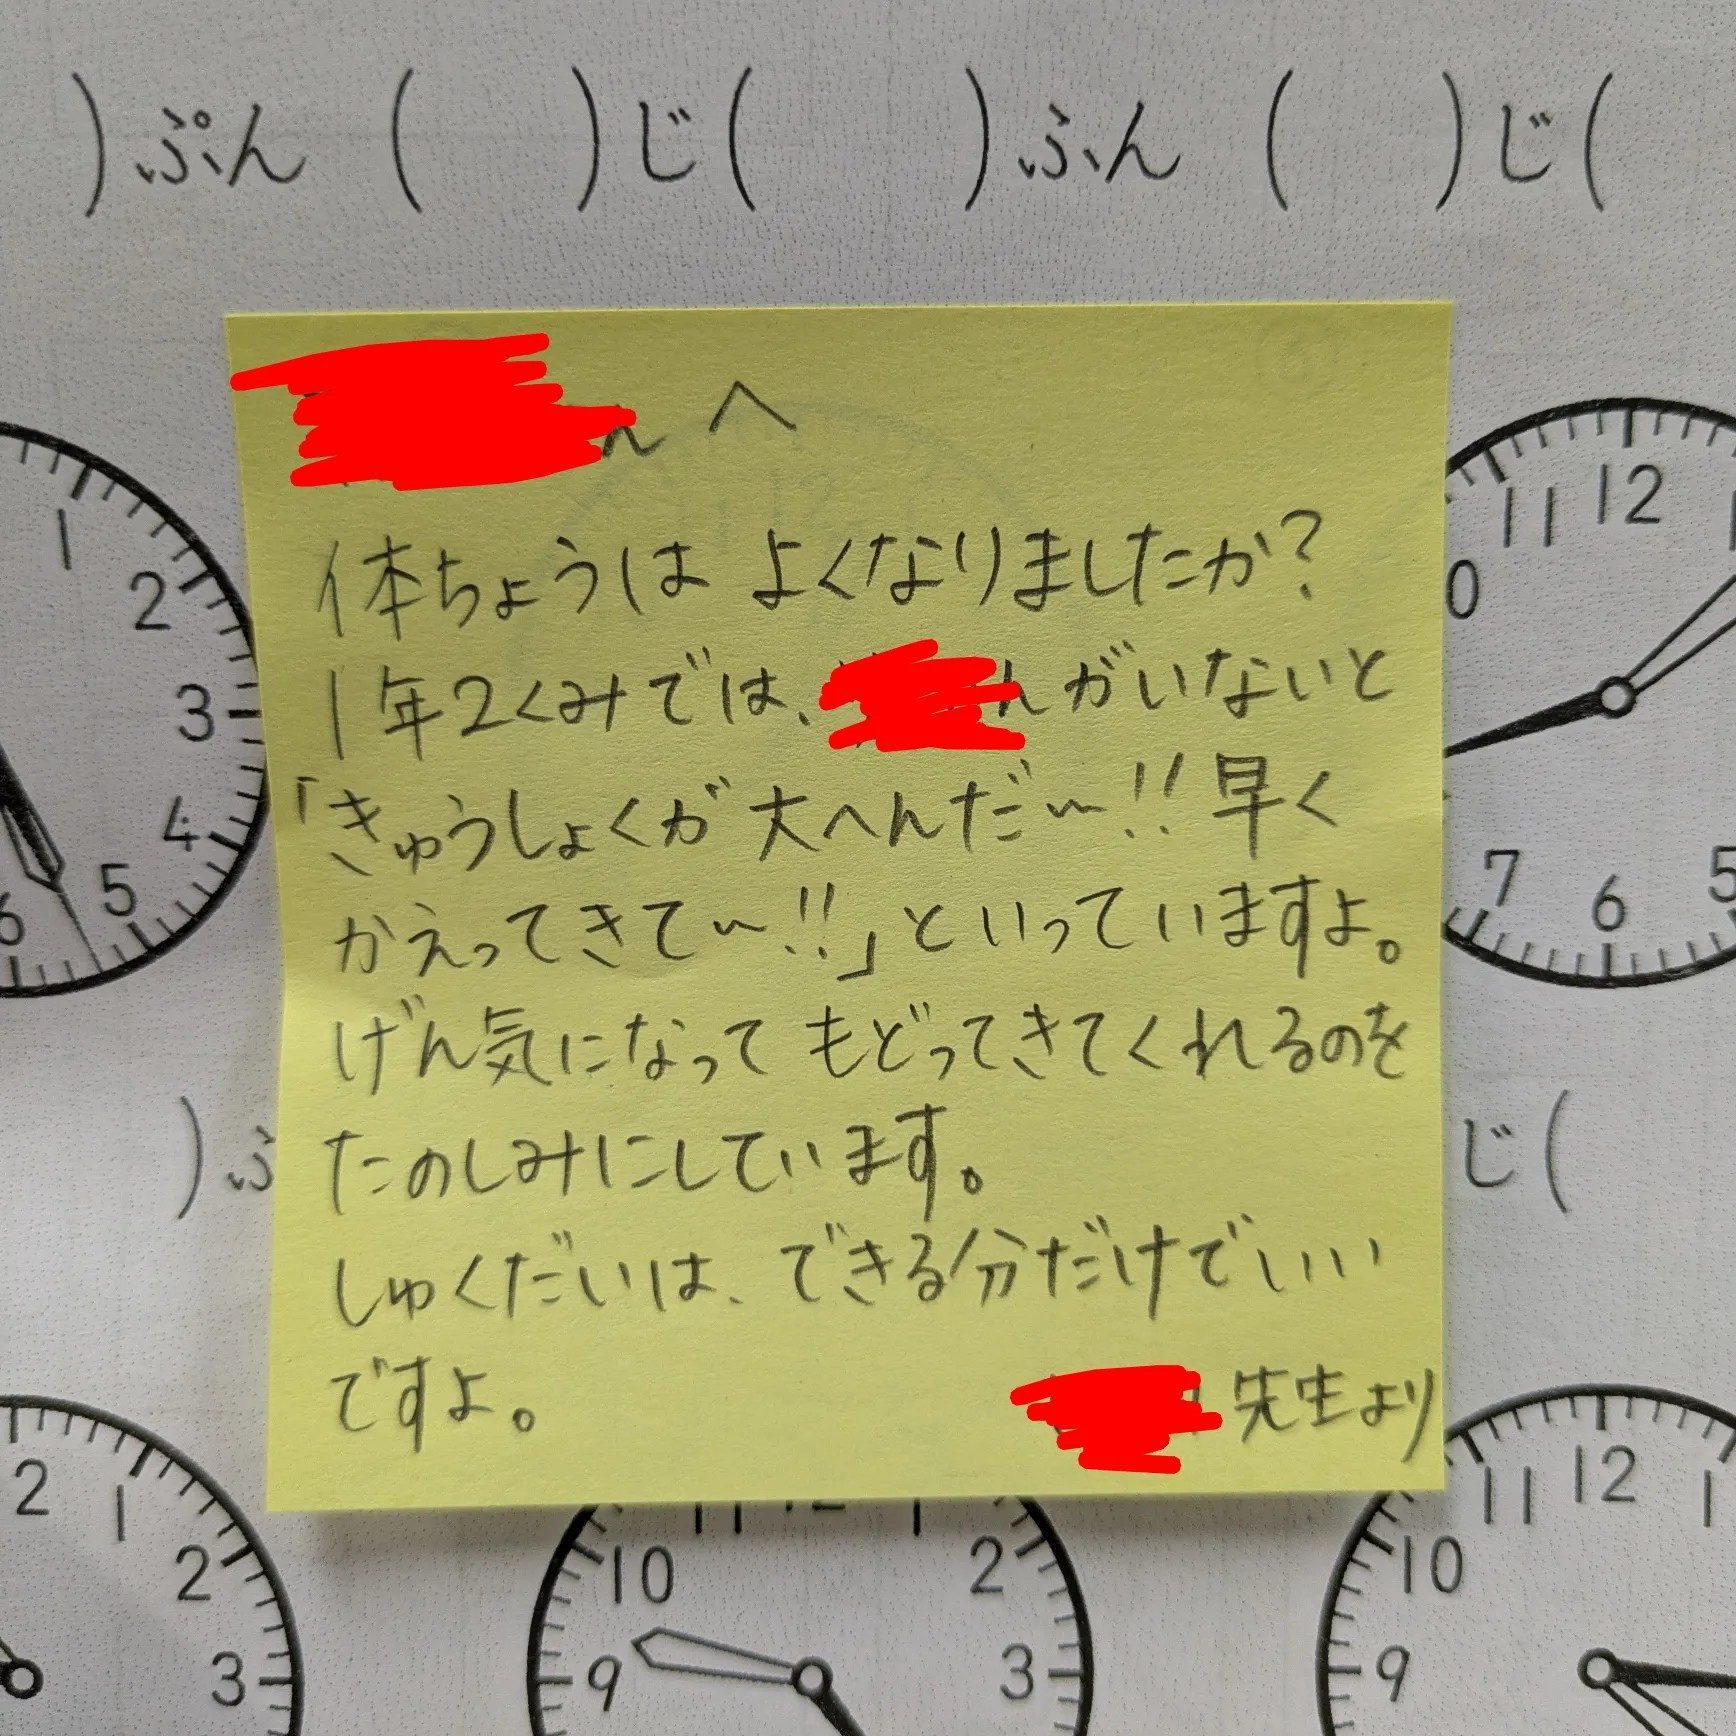 )ぷん ( )じ( )ふん ( )じ(
へ
体ちょうは よくなりましたか?
1年2くみでは、 がいないと
「きゅうしょくが大へんだ〜!!早く
かえってきて〜!!」といっていますよ。
げん気になって もどってきてくれるのを
たのしみにしています。
しゅくだいは、できる分だけでいい
ですよ。
先生より
1 2 3 4 5 6
11 12 0 7 6 5
)ふ
じ(
2 1 2 3
11 12 1 10 2 9 3
11 12 1 10 9